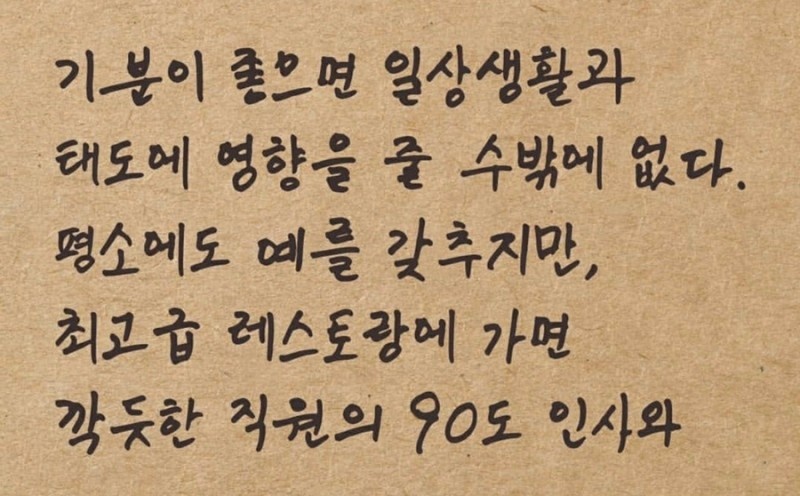 기분이 좋으면 일상생활과
태도에 영향을 줄 수밖에 없다.
평소에도 예를 갖추지만,
최고급 레스토랑에 가면
깍듯한 직원의 90도 인사와